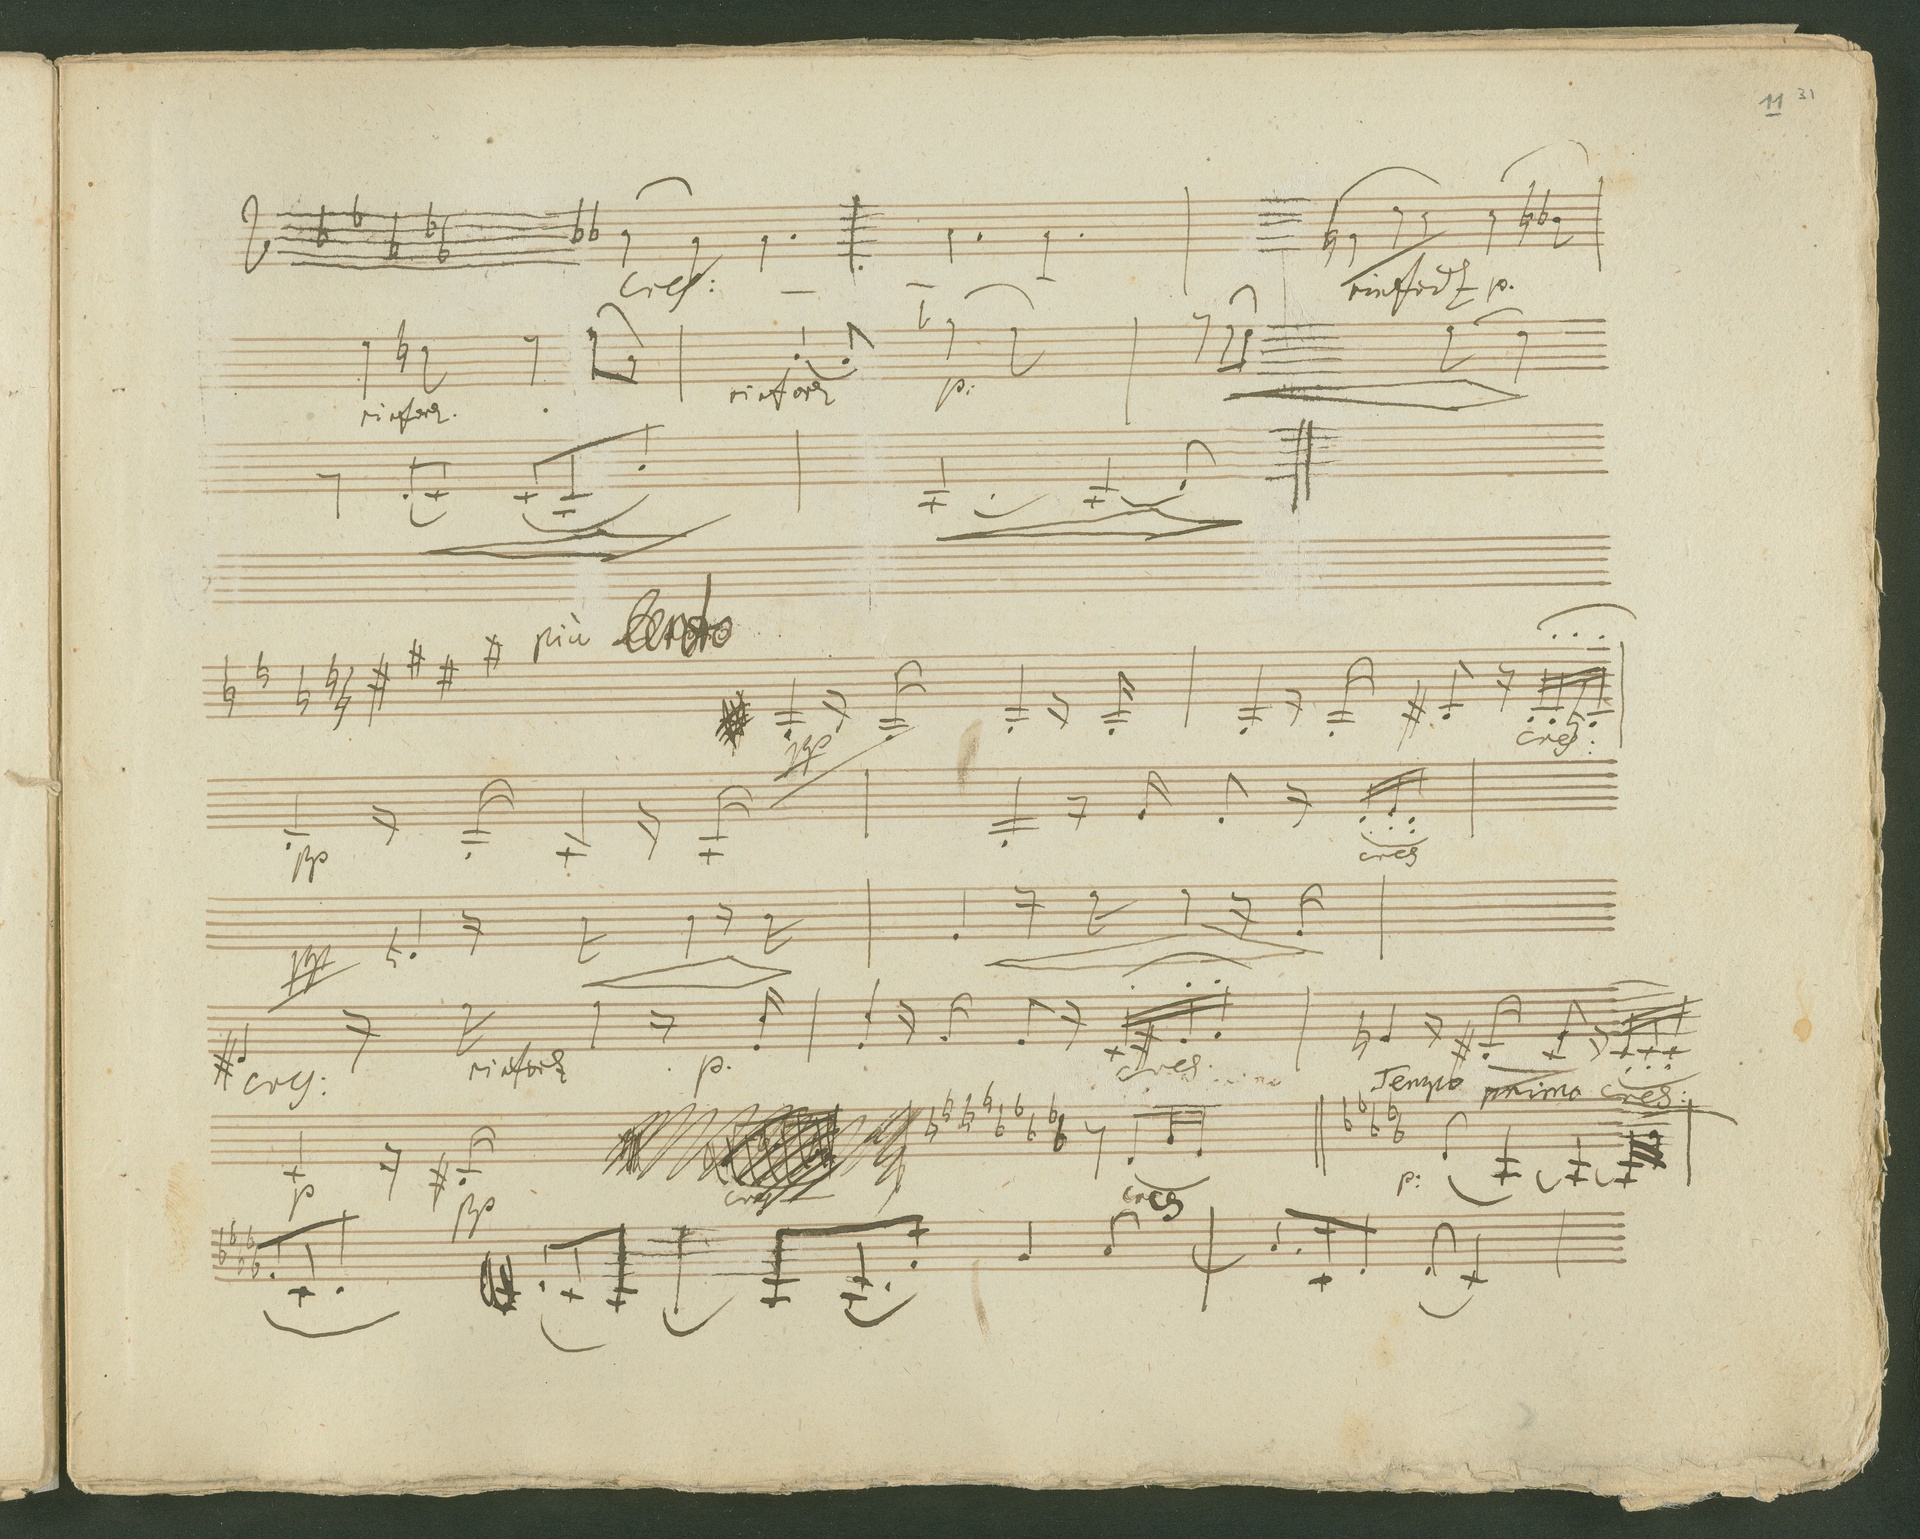 11 31
cresc: — —
rinforz p.
rinforz. rinforz p:
più lento
pp cresc:
pp cres
pp
cresc: rinforz p. cres Tempo primo cres:
p pp cresc cresc p: